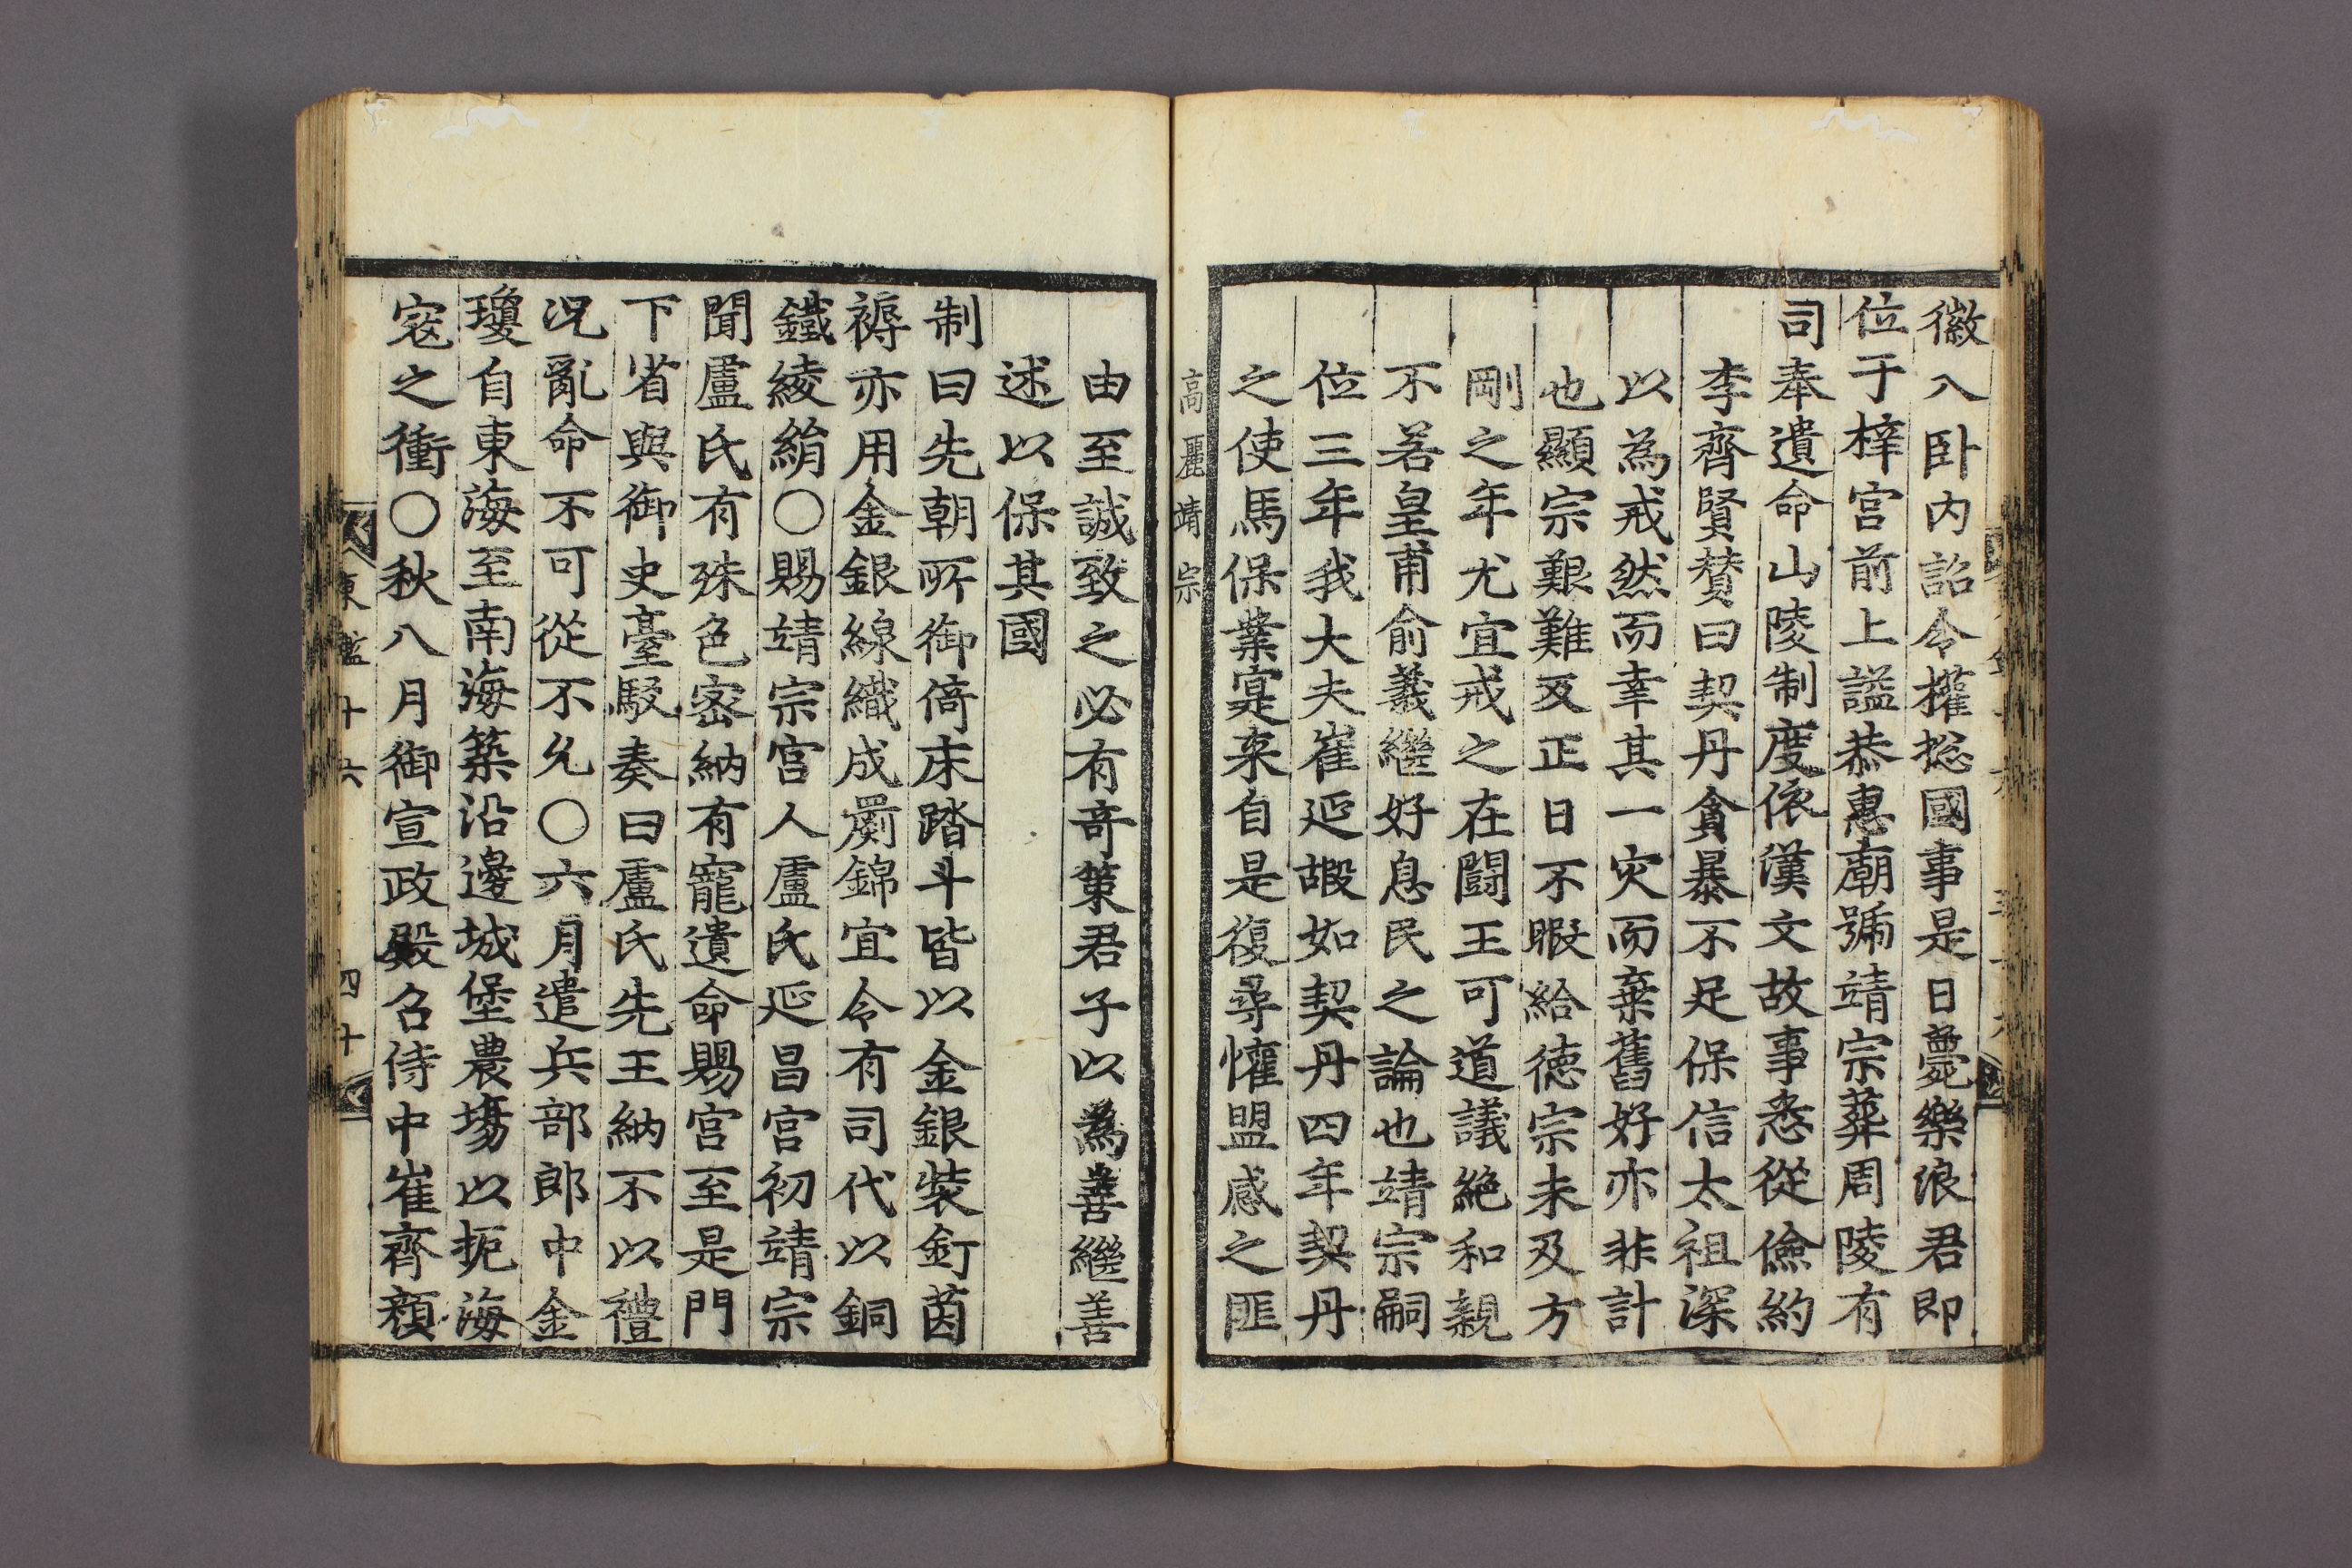 徽入卧内詔令權揔國事是日薨樂浪君即
位于梓宮前上謚恭惠廟號靖宗葬周陵有
司奉遺命山陵制度依漢文故事悉從儉約
李齊賢賛曰契丹貪暴不足保信太祖深
以為戒然而幸其一灾而棄舊好亦非計
也顯宗艱難反正日不暇給徳宗未及方
剛之年尤宜戒之在鬪王可道議絶和親
不若皇甫俞義繼好息民之論也靖宗嗣
位三年我大夫崔延嘏如契丹四年契丹
之使馬保業寔来自是復尋懽盟感之匪
高麗靖宗
由至誠致之必有竒策君子以為善繼善
述以保其國
制曰先朝所御倚床踏斗皆以金銀裝釘茵
褥亦用金銀線織成罽錦宜令有司代以銅
鐵綾絹○賜靖宗宮人盧氏延昌宮初靖宗
聞盧氏有殊色密納有寵遺命賜宮至是門
下省與御史臺駁奏曰盧氏先王納不以禮
况亂命不可從不允○六月遣兵部郎中金
瓊自東海至南海築沿邊城堡農塲以扼海
寇之衝○秋八月御宣政殿召侍中崔齊顔
東鑑十六 四十